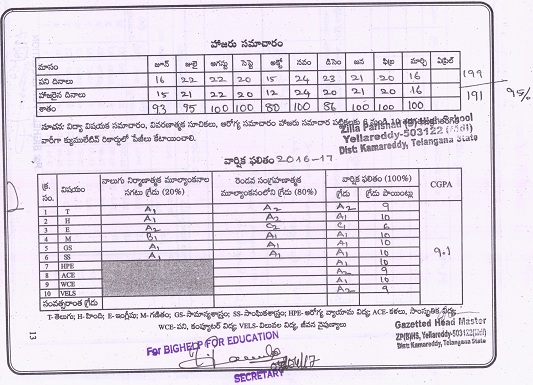 హాజరు సమాచారం
మాసం జూన్ జులై ఆగస్టు సెప్టె అక్టో నవం డిసెం జన ఫిబ్ర మార్చి ఏప్రిల్
పని దినాలు 16 22 22 20 15 24 23 21 20 16 199
హాజరైన దినాలు 15 21 22 20 12 24 20 21 20 16 191 95%
శాతం 93 95 100 100 80 100 86 100 100 100
సూచన: విద్యా విషయక సమాచారం, వివరణాత్మక సూచికలు, ఆరోగ్య సమాచారం హాజరు సమాచార పట్టికలకు 6 నుండి 10
Zilla Parishad School
వారీగా క్యుములేటివ్ రికార్డులో పేజీలు కేటాయించాలి.
Yellareddy-503122
Dist: Kamareddy, Telangana State
వార్షిక ఫలితం 2016-17
క్ర. సం. విషయం నాలుగు నిర్మాణాత్మక మూల్యాంకనాల సగటు గ్రేడు (20%) రెండవ సంగ్రహణాత్మక మూల్యాంకనంలోని గ్రేడు (80%) వార్షిక ఫలితం (100%) గ్రేడు గ్రేడు పాయింట్లు CGPA
1 T A1 A2 A2 9
2 H A1 A2 A1 10
3 E A2 C2 C1 6
4 M B1 A1 A1 10
5 GS A1 A1 A1 10
6 SS A1 A1 A1 10
7 HPE A1 10
8 ACE A2 9
9 WCE A1 10
10 VELS A2 9
9.1
సంవత్సరాంత గ్రేడు
T-తెలుగు; H-హింది; E-ఇంగ్లీషు; M-గణితం; GS-సామాన్యశాస్త్రం; SS-సాంఘికశాస్త్రం; HPE-ఆరోగ్య వ్యాయామ విద్య; ACE-కళలు, సాంస్కృతిక విద్య;
WCE-పని, కంప్యూటర్ విద్య; VELS-విలువల విద్య, జీవన నైపుణ్యాలు
Gazetted Head Master
ZP(B)HS, Yellareddy-503122
Dist: Kamareddy, Telangana State
13
For BIGHELP FOR EDUCATION
SECRETARY